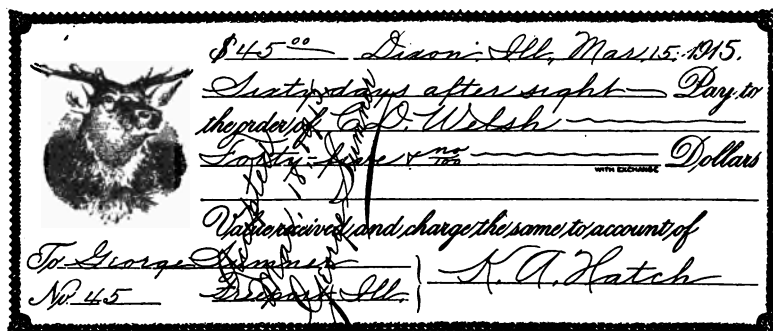 $45 00 Dixon, Ill., Mar. 15, 1915.
Sixty days after sight Pay to
the order of E. D. Welsh
Forty-five & no/100 Dollars
WITH EXCHANGE
Value received and charge the same to account of
To George Sumner
K. A. Hatch
No. 45 Freeport, Ill.
Accepted
Mar. 18,
George Sumner